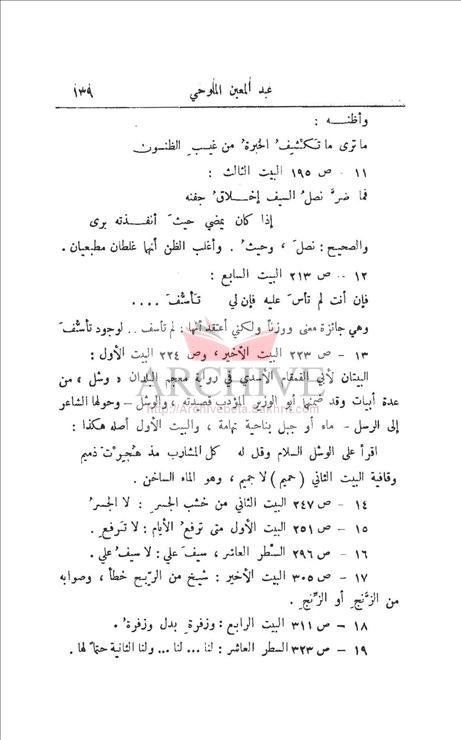 عبد المعين الملوحي ١٣٩
وأظنـــه :
ما ترى ما تكشيفُ الخبرةُ من غيبِ الظنون
١١ - ص ١٩٥ البيت الثالث :
فما ضرَّ نصلُ السيف إخلاقُ جفنه
إذا كان يمضي حيثَ أنفذته برى
والصحيح : نصلَ ، وحيثُ . وأغلب الظن أنها غلطان مطبعيان .
١٢ - ص ٢١٣ البيت السابع :
فإن أنت لم تأسَ عليه فإن لي تأسُّفَ ....
وهي جائزة معنى ووزناً ولكني أعتقد أنها : لم تأسف .. لوجود تأسُّفَ
١٣ - ص ٢٢٣ البيت الأخير ، وص ٢٢٤ البيت الأول :
البيتان لأبي القمقام الأسدي في رواية معجم البلدان « وشل » من
عدة أبيات وقد ضمنها أبو الوزير المؤدب قصيدته ، والوشل – وحولها الشاعر
إلى الرسل - ماء أو جبل بناحية تهامة ، والبيت الأول أصله هكذا :
اقرأ على الوشل السلام وقل له كل المشارب مذ هُجيرْتَ ذميم
وقافية البيت الثاني ( حميم ) لا جميم ، وهو الماء الساخن .
١٤ - ص ٢٤٧ البيت الثاني من خشب الجسرِ : لا الجسرُ
١٥ - ص ٢٥١ البيت الأول متى ترفعُ الأيام : لا ترفعِ .
١٦ - ص ٢٩٦ السطر العاشر ، سيفَ علي : لا سيفُ علي .
١٧ - ص ٣٠٥ البيت الأخير : شيخ من الربخ خطأ ، وصوابه
من الزَّنج أو الزِّنج .
١٨ - ص ٣١١ البيت الرابع : وزفرةٍ بدل وزفرةُ .
١٩ - ص ٣٢٣ السطر العاشر : لنا ... لنا ... ولنا الثانية حتماً لها .
ARCHIVE
http://Archivebeta.Sakhrit.com